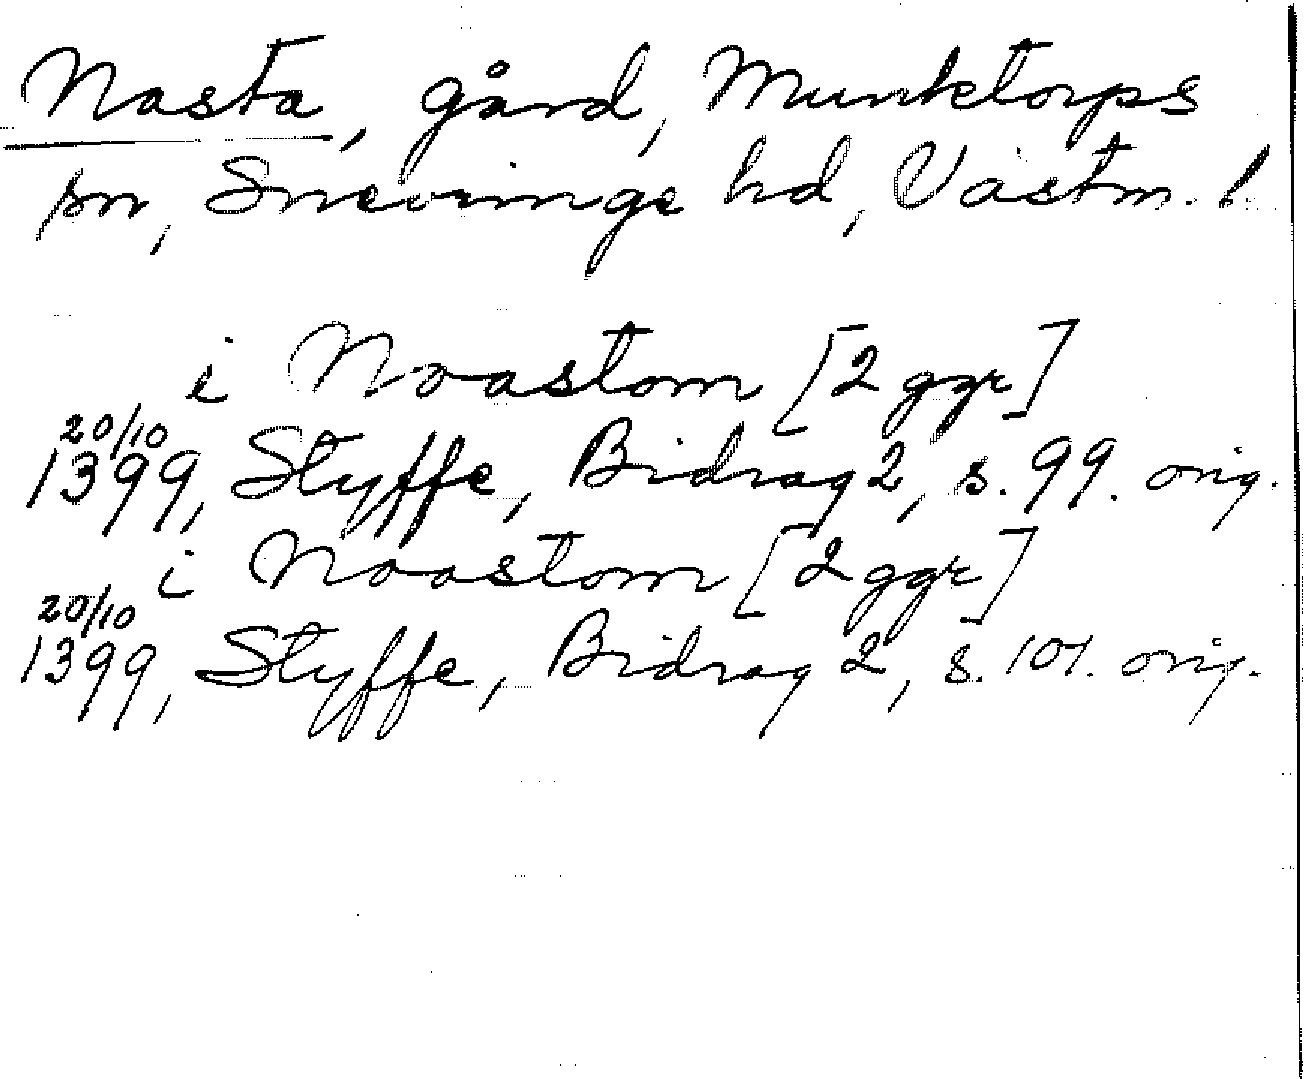 Nasta, gård, Munktorps
sn, Snevringe hd, Västm. l.
i Noastom [2 ggr]
20/10
1399, Styffe, Bidrag 2, s. 99. orig.
i Noostom [2 ggr]
20/10
1399, Styffe, Bidrag 2, s. 101. orig.